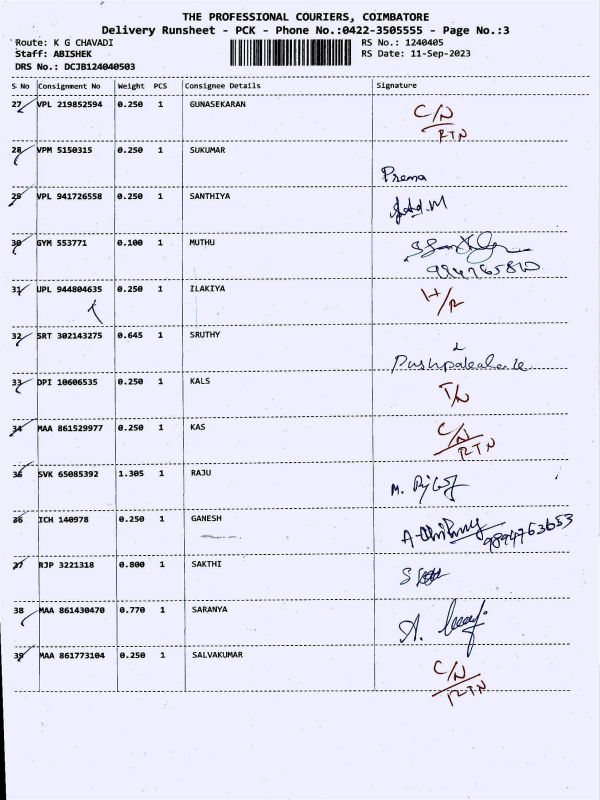 THE PROFESSIONAL COURIERS, COIMBATORE
Delivery Runsheet - PCK - Phone No.:0422-3505555 - Page No.:3
Route: K G CHAVADI RS No.: 1240405
Staff: ABISHEK RS Date: 11-Sep-2023
DRS No.: DCJB124040503
S No Consignment No Weight PCS Consignee Details Signature
27 VPL 219852594 0.250 1 GUNASEKARAN C/N
RTN
28 VPM 5150315 0.250 1 SUKUMAR
Prema
29 VPL 941726558 0.250 1 SANTHIYA
30 GYM 553771 0.100 1 MUTHU
31 UPL 944804635 0.250 1 ILAKIYA H/R
32 SRT 302143275 0.645 1 SRUTHY
33 DPI 10606535 0.250 1 KALS T/N
34 MAA 861529977 0.250 1 KAS C/N
RTN
35 SVK 65085392 1.305 1 RAJU
36 ICH 140978 0.250 1 GANESH
9894763653
37 RJP 3221318 0.800 1 SAKTHI
38 MAA 861430470 0.770 1 SARANYA
39 MAA 861773104 0.250 1 SALVAKUMAR C/N
RTN